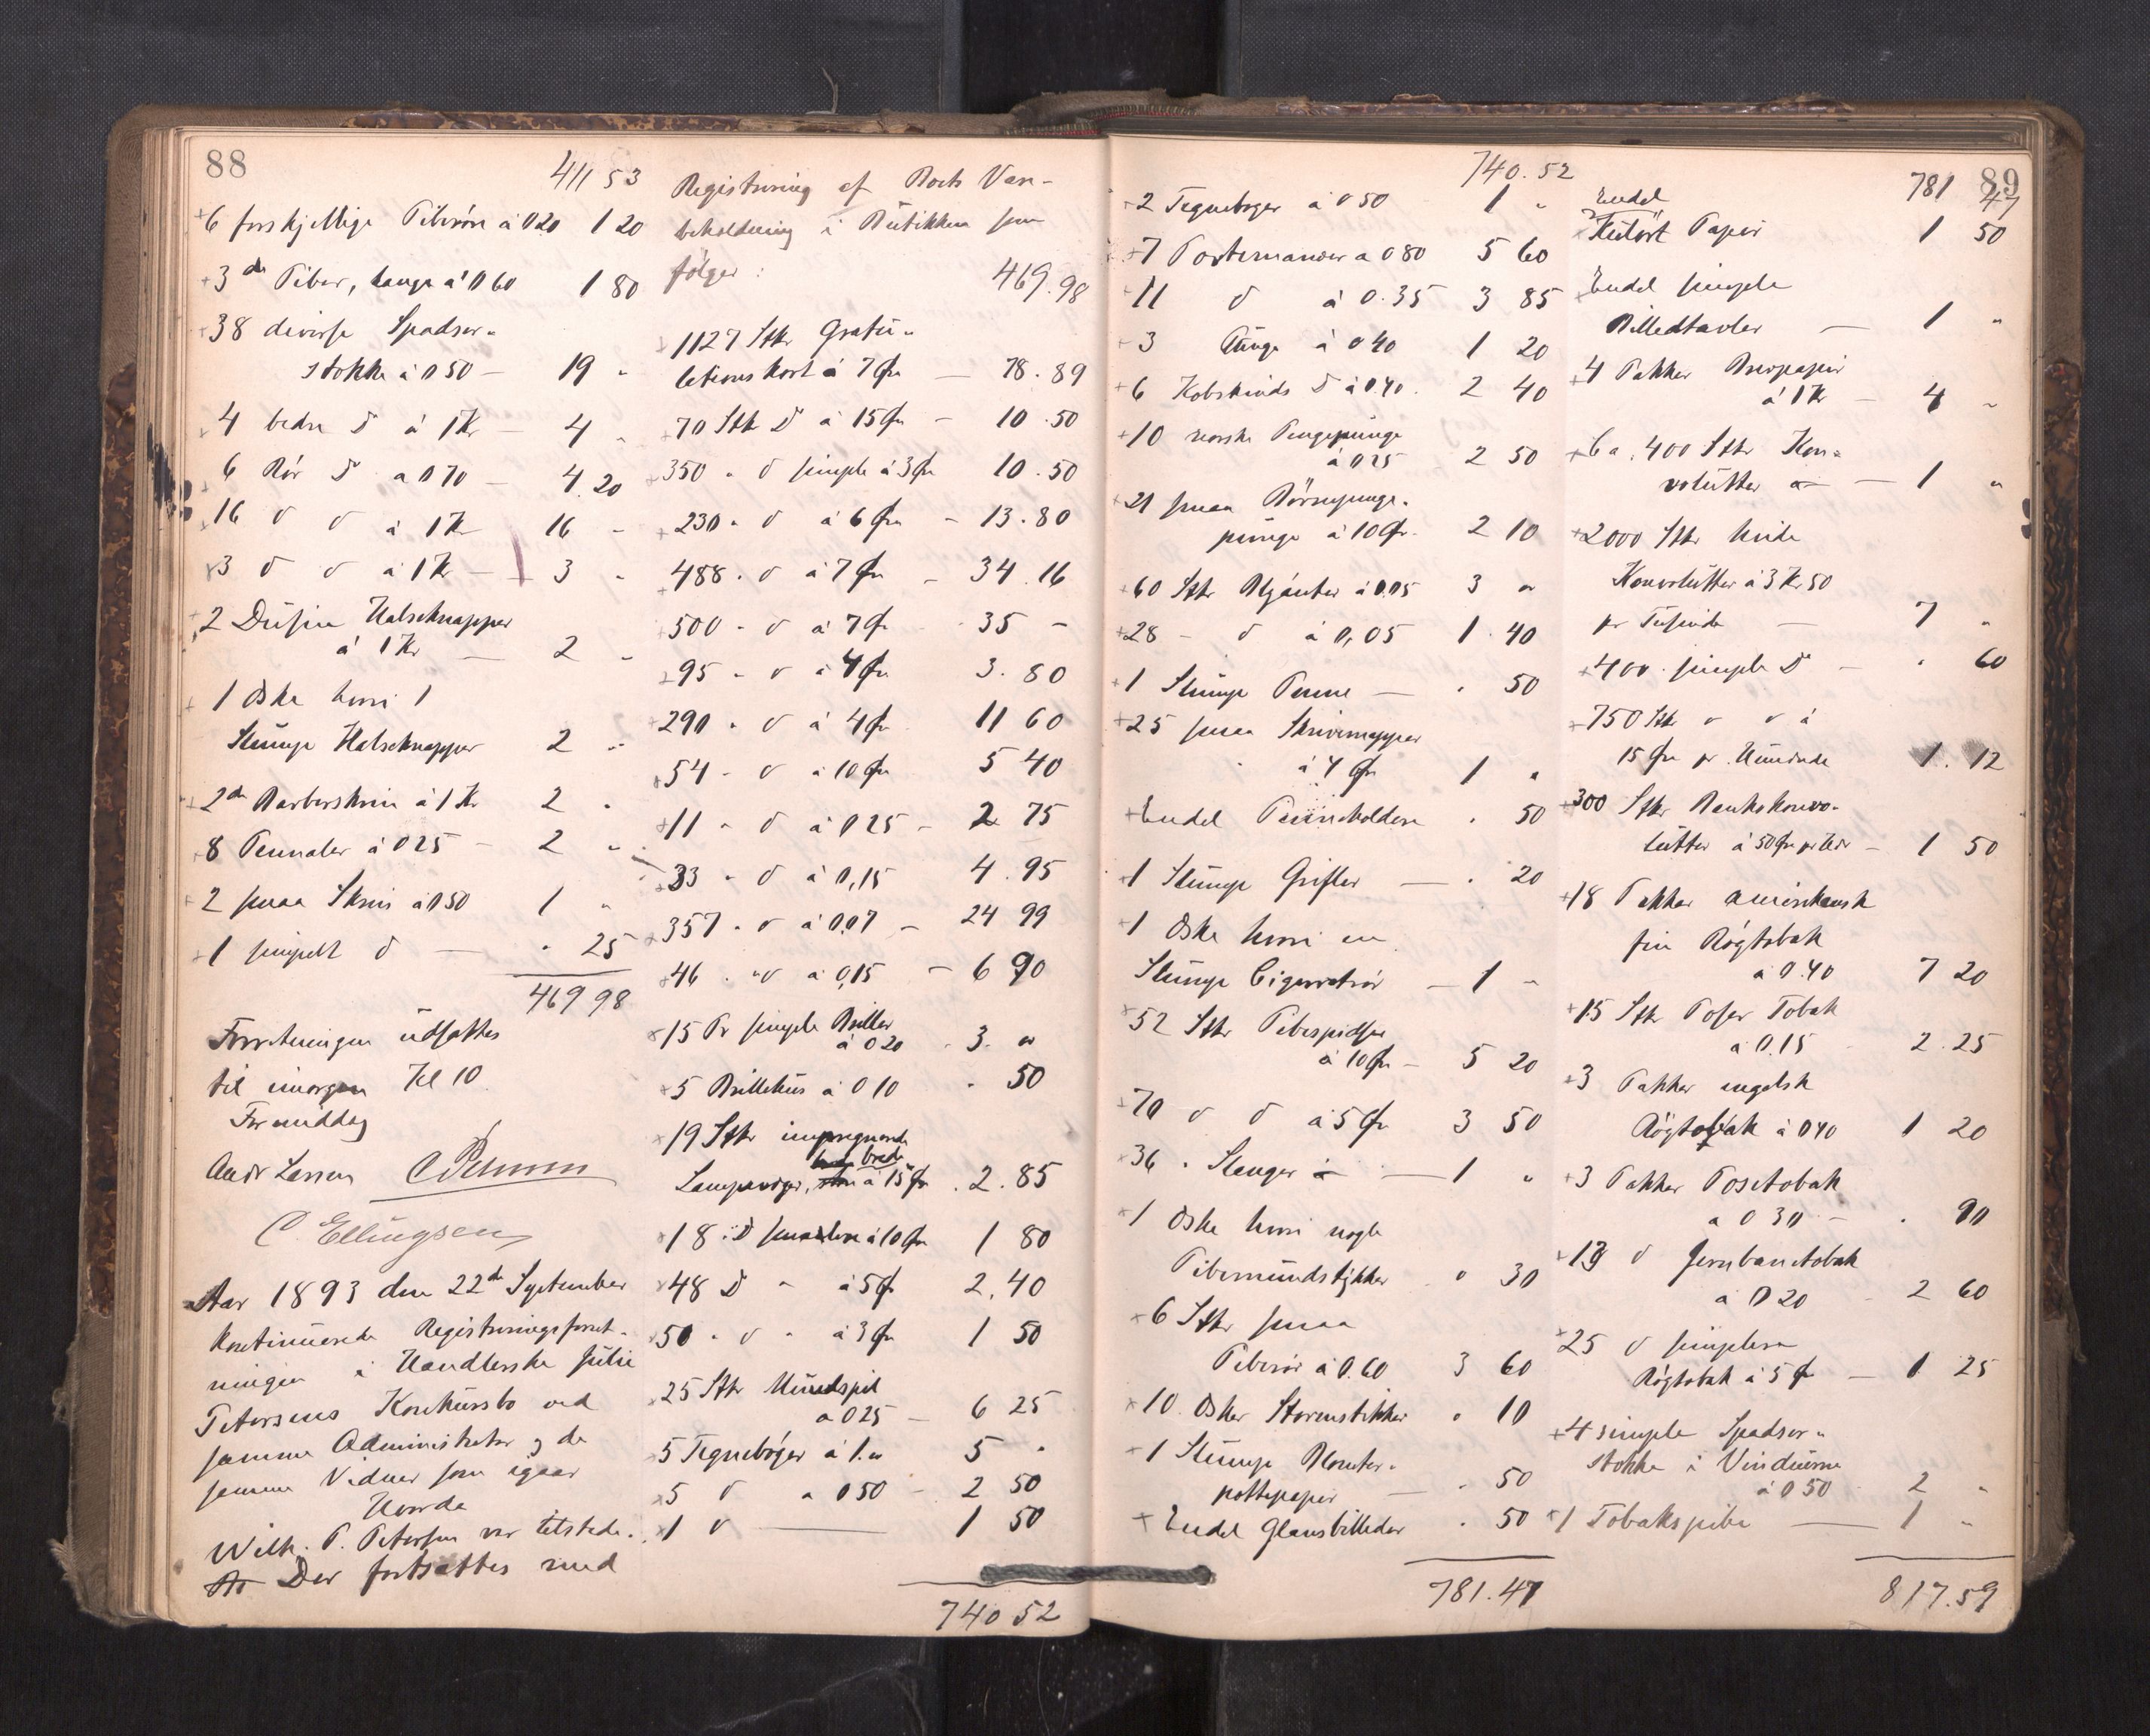 88
411 53
6 forskjellige Piberör à 0 20 1 20
3 do Piber, lange à 0 60 1 80
38 diverse Spadser-
stokke à 0 50 — 19 "
4 bedre do à 1 Kr — 4 "
6 Rör do a 0 70 — 4. 20
16 do do à 1 Kr 16 -
3 do do à 1 Kr — 3 "
2 Dusin Halsknapper
à 1 Kr — 2 "
1 Æske hvori 1
Slump Halsknapper 2 "
2 do Barberskrin à 1 Kr 2 "
8 Pennaler à 0 25 - 2 "
2 smaa Skrin à 0 50 1 "
1 simpelt do — " 25
469 98
Forretningen udsattes
til imorgen Kl 10
Formiddag
Andr Larsen
C. Ellingsen
Aar 1893 den 22de September
kontinuerede Registreringsforret-
ningen i Handlerske Julie
Petersens Konkursbo ved
samme Administrator og de
samme Vidner som igaar
Hrr
Wilh. P. Petersen var tilstede.
Der fortsattes med
Registrering af Boets Vare-
beholdning i Butikken som
følger: 469.98
1127 Stk Gratu-
lationskort à 7 Øre — 78.89
70 Stk do à 15 Øre - 10.50
350 " do simple à 3 Øre 10.50
230 " do à 6 Øre - 13.80
488 " do à 7 Øre - 34.16
500 " do à 7 Øre 35 -
95 " do à 4 Øre 3.80
290 " do à 4 Øre 11 60
54 " do à 10 Øre 5 40
11 " do à 0 25 - 2 75
33 " do à 0,15 4.95
357 " do à 0.07 - 24 99
46 " do à 0,15 - 6 90
15 Pr simple Briller
à 0 20 - 3. "
5 Brillehus à 0 10 " 50
19 Stk imprægnerede
brede
Lampeveger, à 15 Øre . 2.85
18 do smalere à 10 Øre 1 80
48 do " à 5 Ø 2.40
50 " do " à 3 Øre 1 50
25 Stk Mundspil
a 0 25 - 6 25
5 Tegnebøger à 1. " 5 "
5 do a 0 50 - 2 50
1 do — 1 50
740 52
740.52
2 Tegnebøger à 0 50 1 "
7 Portemonnaier a 0 80 5 60
11 do à 0.35 3 85
3 Punge à 0 40 1 20
6 Kobskinds do à 0.40. 2 40
10 norske Pengepunge
à 0 25 2 50
21 smaa Börnepenge-
punge à 10 Ør. 2 10
60 Stk Blyanter à 0.05 3 "
28 - do à 0,05 1.40
1 Slump Penne — " 50
25 smaa Skrivemapper
à 4 Øre 1 "
Endel Penneholdere " 50
1 Slump Grifler — " 20
1 Æske hvori en
Slump Cigaretrör — 1 "
52 Stk Pibespidse
à 10 Øre - 5 20
70 do do à 5 Øre 3 50
36 " Slanger à — 1 "
1 Æske hvori nogle
Pibemundstykker " 30
6 Stk smaa
Piberör à 0.60 3 60
10 Æsker Stormstikker " 10
1 Slump Blomster-
pottepapir — " 50
Endel Glansbilleder " 50
781.47
89
781 47
Endel
Kulört Papir 1 50
Endel simple
Billedtavler — 1 "
4 Pakker Brevpapir
à 1 Kr — 4 "
Ca. 400 Stk Kon-
volutter a — 1 "
2000 Stk hvide
Konvolutter à 3 Kr 50
pr Tusinde — 7 "
400 simple do — " 60
750 Stk do do à
15 Øre pr. Hundrede 1. 12
300 Stk Bankokonvo-
lutter à 50 Øre pr Hdr — 1 50
18 Pakker amerikansk
fin Røgtobak
à 0.40 7 20
15 Stk Poser Tobak
a 0.15 2.25
3 Pakker engelsk
Røgtobak à 0 40 1 20
3 Pakker Posetobak
a 0 30 - . 90
13 do Jernbanetobak
a 0 20 2 60
25 do simplere
Røgtobak à 5 Ø — 1 25
4 simple Spadser-
stokke i Vinduerne
à 0 50 2 "
1 Tobakspibe — 1 "
817.59